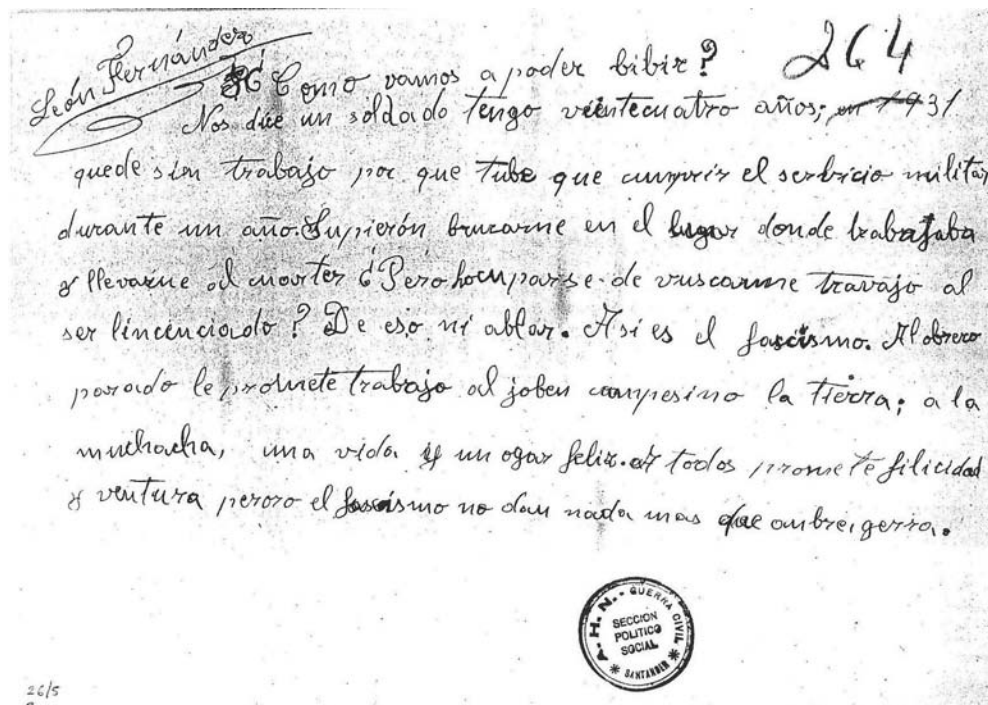 León Fernández
264
¿Como vamos a poder bibir?
Nos dice un soldado tengo veintecuatro años; en 1931
quede sin trabajo por que tube que cumprir el serbicio militar
durante un año. Supierón bruzarme en el lugar donde trabajaba
y llevarme al cuorter ¿Pero hocuparse de vuscarme travajo al
ser lincenciado? De eso ni ablar. Asi es el fascismo. Al obrero
parado le promete trabajo al joben campesino la tierra; a la
muchacha, una vida y un ogar feliz. A todos promete filicidad
y ventura peroro el fascismo no dan nada mas que ambre, gerra.
A. H. N. - GUERRA CIVIL
SECCION
POLITICO
SOCIAL
* SANTANDER *
26/5